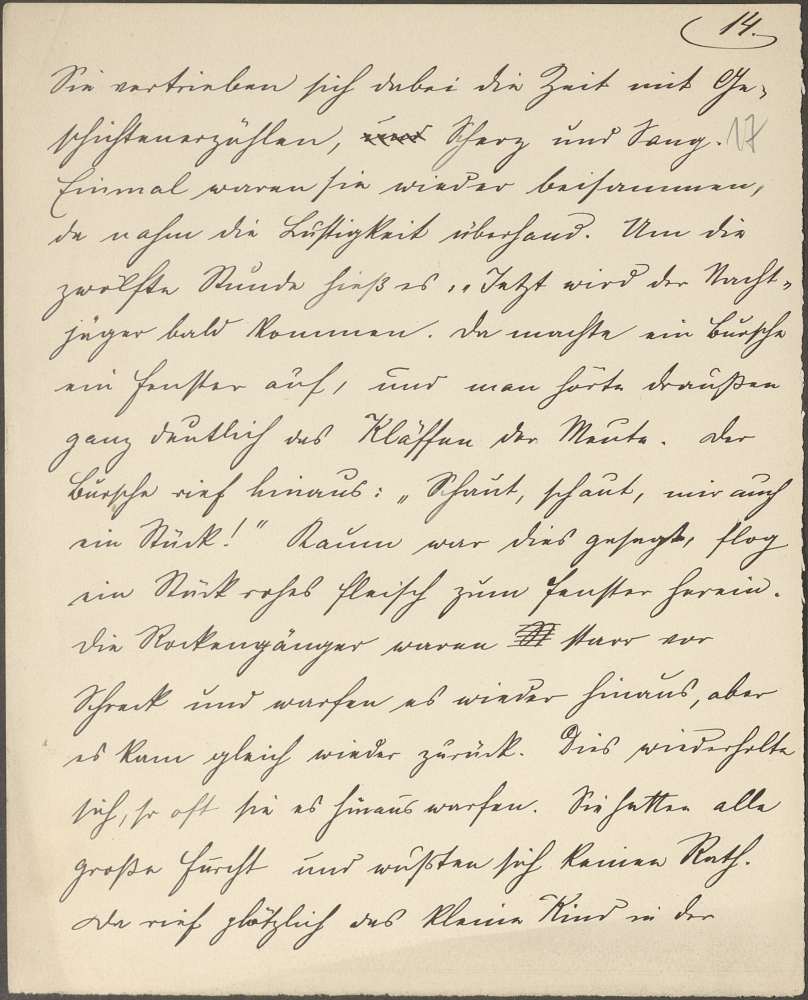 14.
Sie vertrieben sich dabei die Zeit mit Ge-
schichtenerzählen, und Scherz und Sang. 17
Einmal waren sie wieder beisammen,
da nahm die Lustigkeit überhand. Um die
zwölfte Stunde hieß es: „Jetzt wird der Nacht-
jäger bald kommen. Da machte ein Bursche
ein Fenster auf, und man hörte draußen
ganz deutlich das Kläffen der Meute. Der
Bursche rief hinaus: „Schaut, schaut, mir auch
ein Stück!" Kaum war dies gesagt, flog
ein Stück rohes Fleisch zum Fenster herein.
Die Rockengänger waren starr vor
Schreck und warfen es wieder hinaus, aber
es kam gleich wieder zurück. Dies wiederholte
sich, so oft sie es hinaus warfen. Sie hatten alle
große Furcht und wußten sich keinen Rath.
Da rief plötzlich das kleine Kind in der